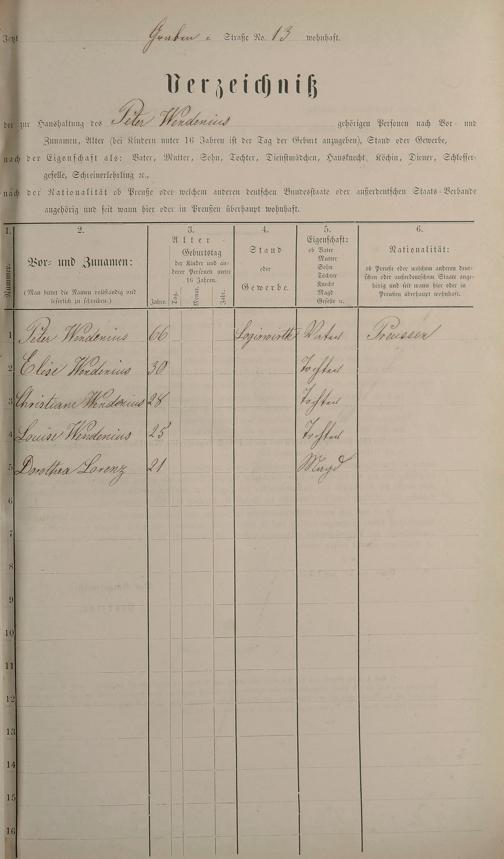 Jetzt Graben Straße No. 13 wohnhaft.
Verzeichniß
der zur Haushaltung des Peter Wendenius gehörigen Personen nach Vor- und
Zunamen, Alter (bei Kindern unter 16 Jahren ist der Tag der Geburt anzugeben), Stand oder Gewerbe,
nach der Eigenschaft als: Vater, Mutter, Sohn, Tochter, Dienstmädchen, Hausknecht, Köchin, Diener, Schlosser-
geselle, Schreinerlehrling ꝛc.,
nach der Nationalität ob Preuße oder welchem anderen deutschen Bundesstaate oder außerdeutschen Staats-Verbande
angehörig und seit wann hier oder in Preußen überhaupt wohnhaft.
1. 2. 3. 4. 5. 6.
Nummer.
Vor- und Zunamen:
(Man bittet die Namen vollständig und
leserlich zu schreiben.)
Alter
Geburtstag
der Kinder und an-
derer Personen unter
16 Jahren.
Jahre. Tag. Monat. Jahr.
Stand
oder
Gewerbe.
Eigenschaft:
ob Vater
Mutter
Sohn
Tochter
Knecht
Magd
Geselle u.
Nationalität:
ob Preuße oder welchem anderen deut-
schen oder außerdeutschen Staate ange-
hörig und seit wann hier oder in
Preußen überhaupt wohnhaft.
1 Peter Wendenius 66 Logirwirth Vater Preussen
2 Elise Wendenius 30 Tochter
3 Christiane Wendenius 28 Tochter
4 Louise Wendenius 25 Tochter
5 Dorothea Lorenz 21 Magd
6
7
8
9
10
11
12
13
14
15
16